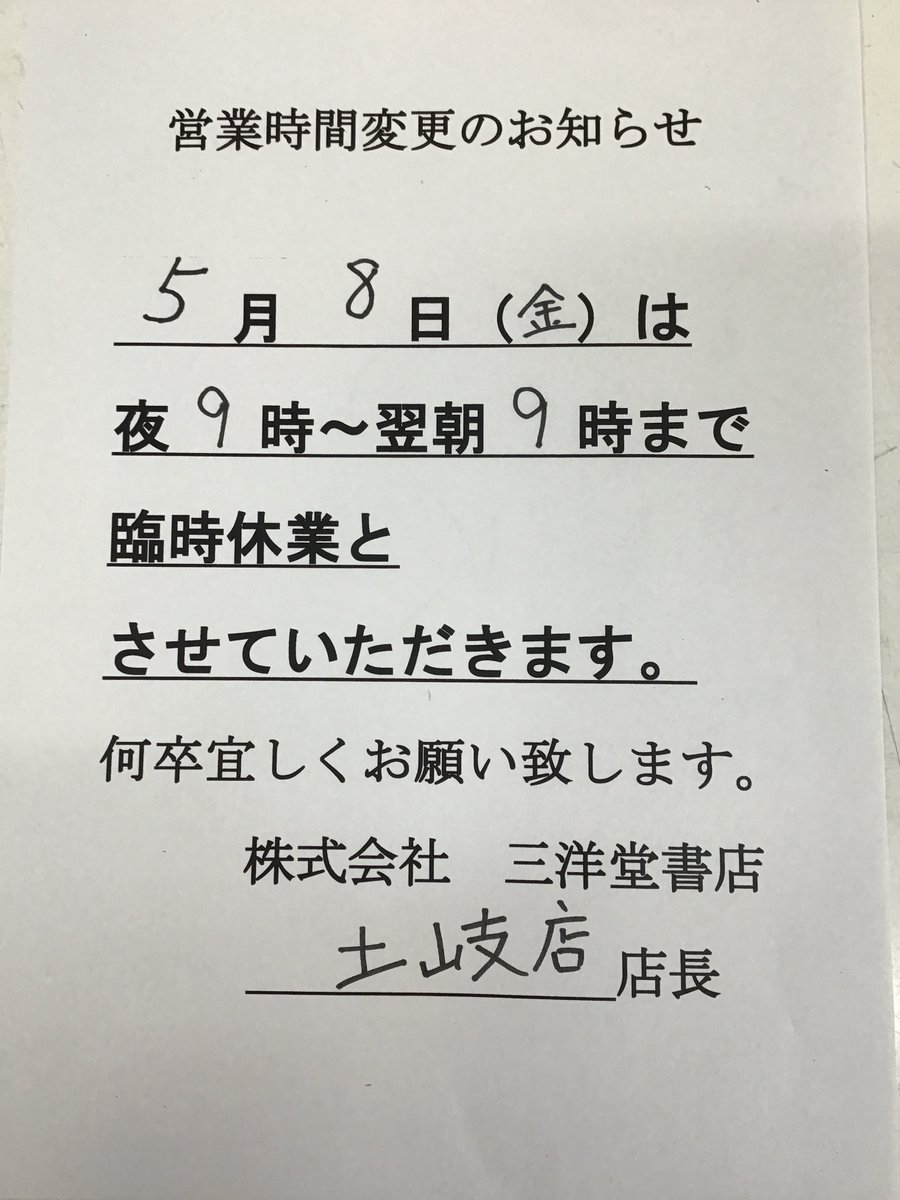 営業時間変更のお知らせ
5月8日（金）は
夜9時～翌朝9時まで
臨時休業と
させていただきます。
何卒宜しくお願い致します。
株式会社　三洋堂書店
土岐店店長